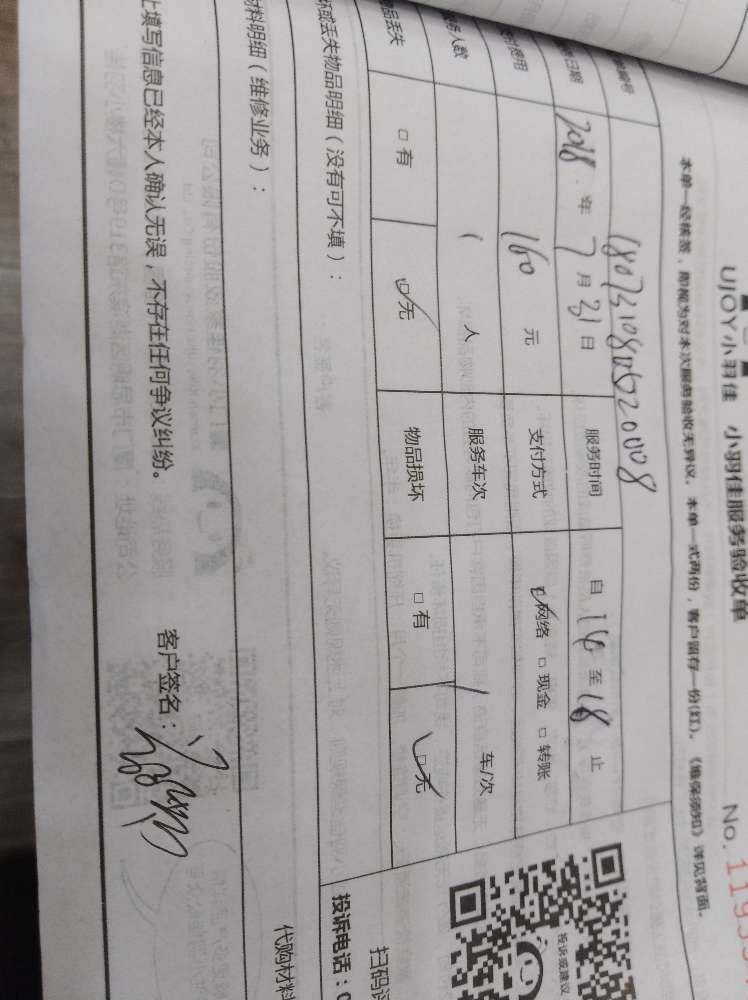 UJOY小羽佳 小羽佳服务验收单
No. 1193
本单一经核签，即视为对本次服务验收无异议。本单一式两份，客户留存一份(红)。《维保须知》详见背面。
编号 180731080520008
日期 2018 年 7 月 31 日 服务时间 自 16 至 18 止
费用 160 元 支付方式 ☑网络 □现金 □转账
人数 1 人 服务车次 1 车/次
物品丢失 □有 ☑无 物品损坏 □有 ☑无
坏或丢失物品明细（没有可不填）：
材料明细（维修业务）：
上填写信息已经本人确认无误，不存在任何争议纠纷。
客户签名：
投诉或建议
扫码
投诉电话：0
代购材料